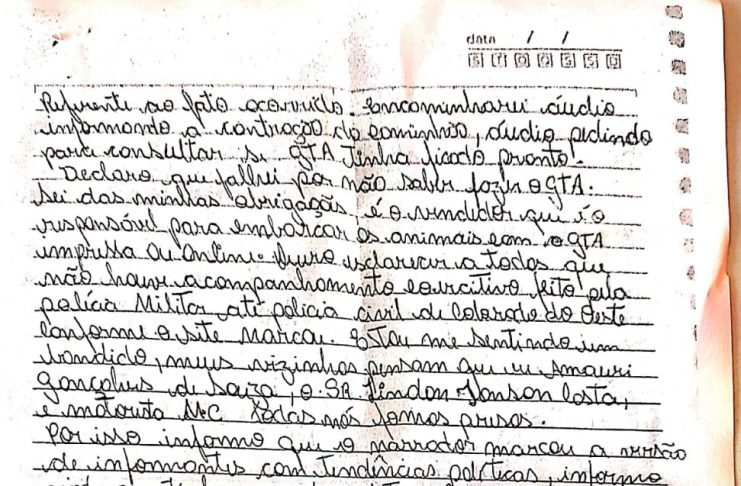 data / /
S T Q Q S S D
Referente ao fato ocorrido. Encaminharei áudio
informando a contração do caminhão, áudio pedindo
para consultar se GTA Tinha ficado pronto.
Declaro que falhei por não saber fazer o GTA.
Sei das minhas obrigações, é o vendedor que é o
responsável para embarcar os animais com o GTA
impressa ou Online. Quero esclarecer a todos que
não houve acompanhamento coercitivo feito pela
polícia Militar até polícia civil de Colorado do Oeste
conforme o site Marcou. Estou me sentindo um
bandido, meus vizinhos pensam que eu Amauri
Gonçalves de Souza, o SR. Lindon Jonson Costa,
e motorista M.C todos nós fomos presos.
Por isso informo que o narrador marcou a versão
de informantes com Tendências políticas, informo